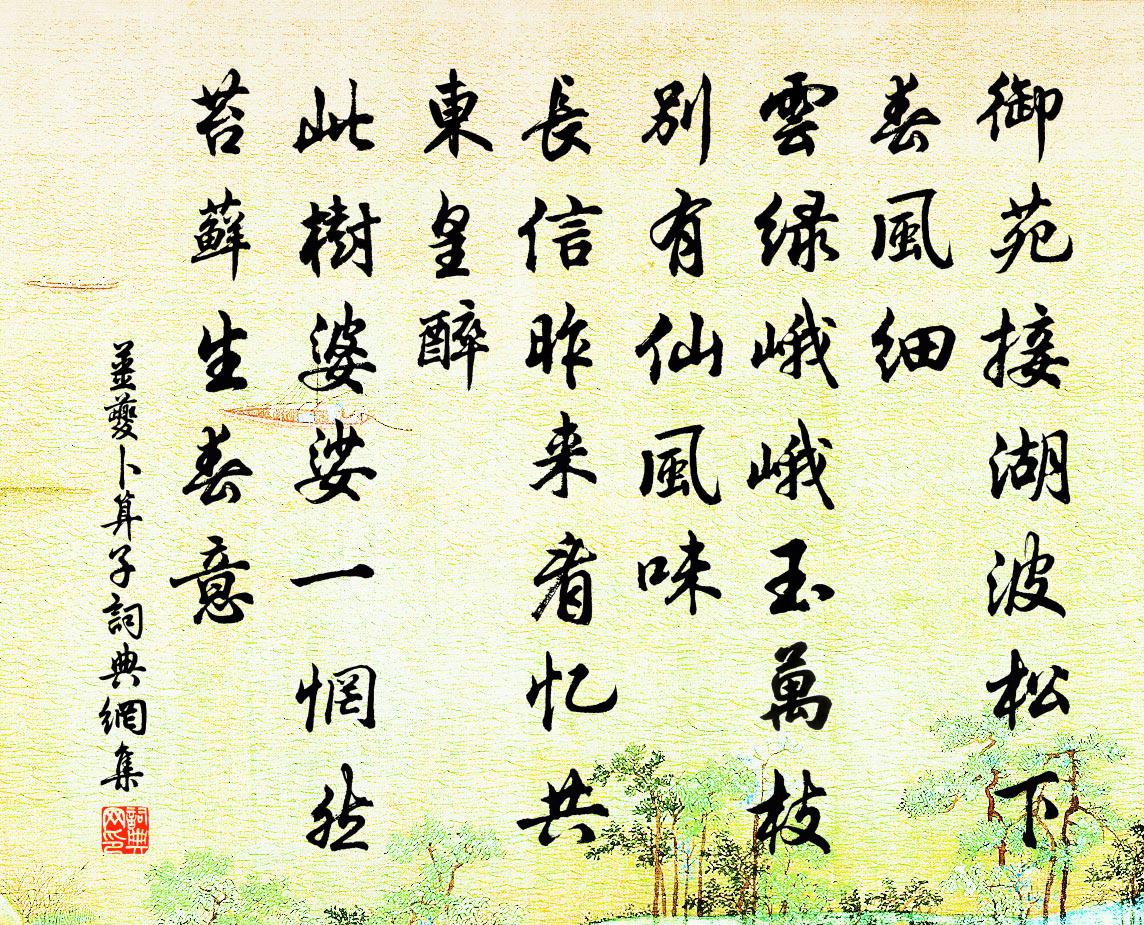 御苑接湖波松下
春風細
雲绿峨峨玉萬枝
别有仙風味
長信昨来看忆共
東皇醉
此樹婆娑一惘然
苔蘚生春意
姜夔卜算子詞典網集
詞典网印